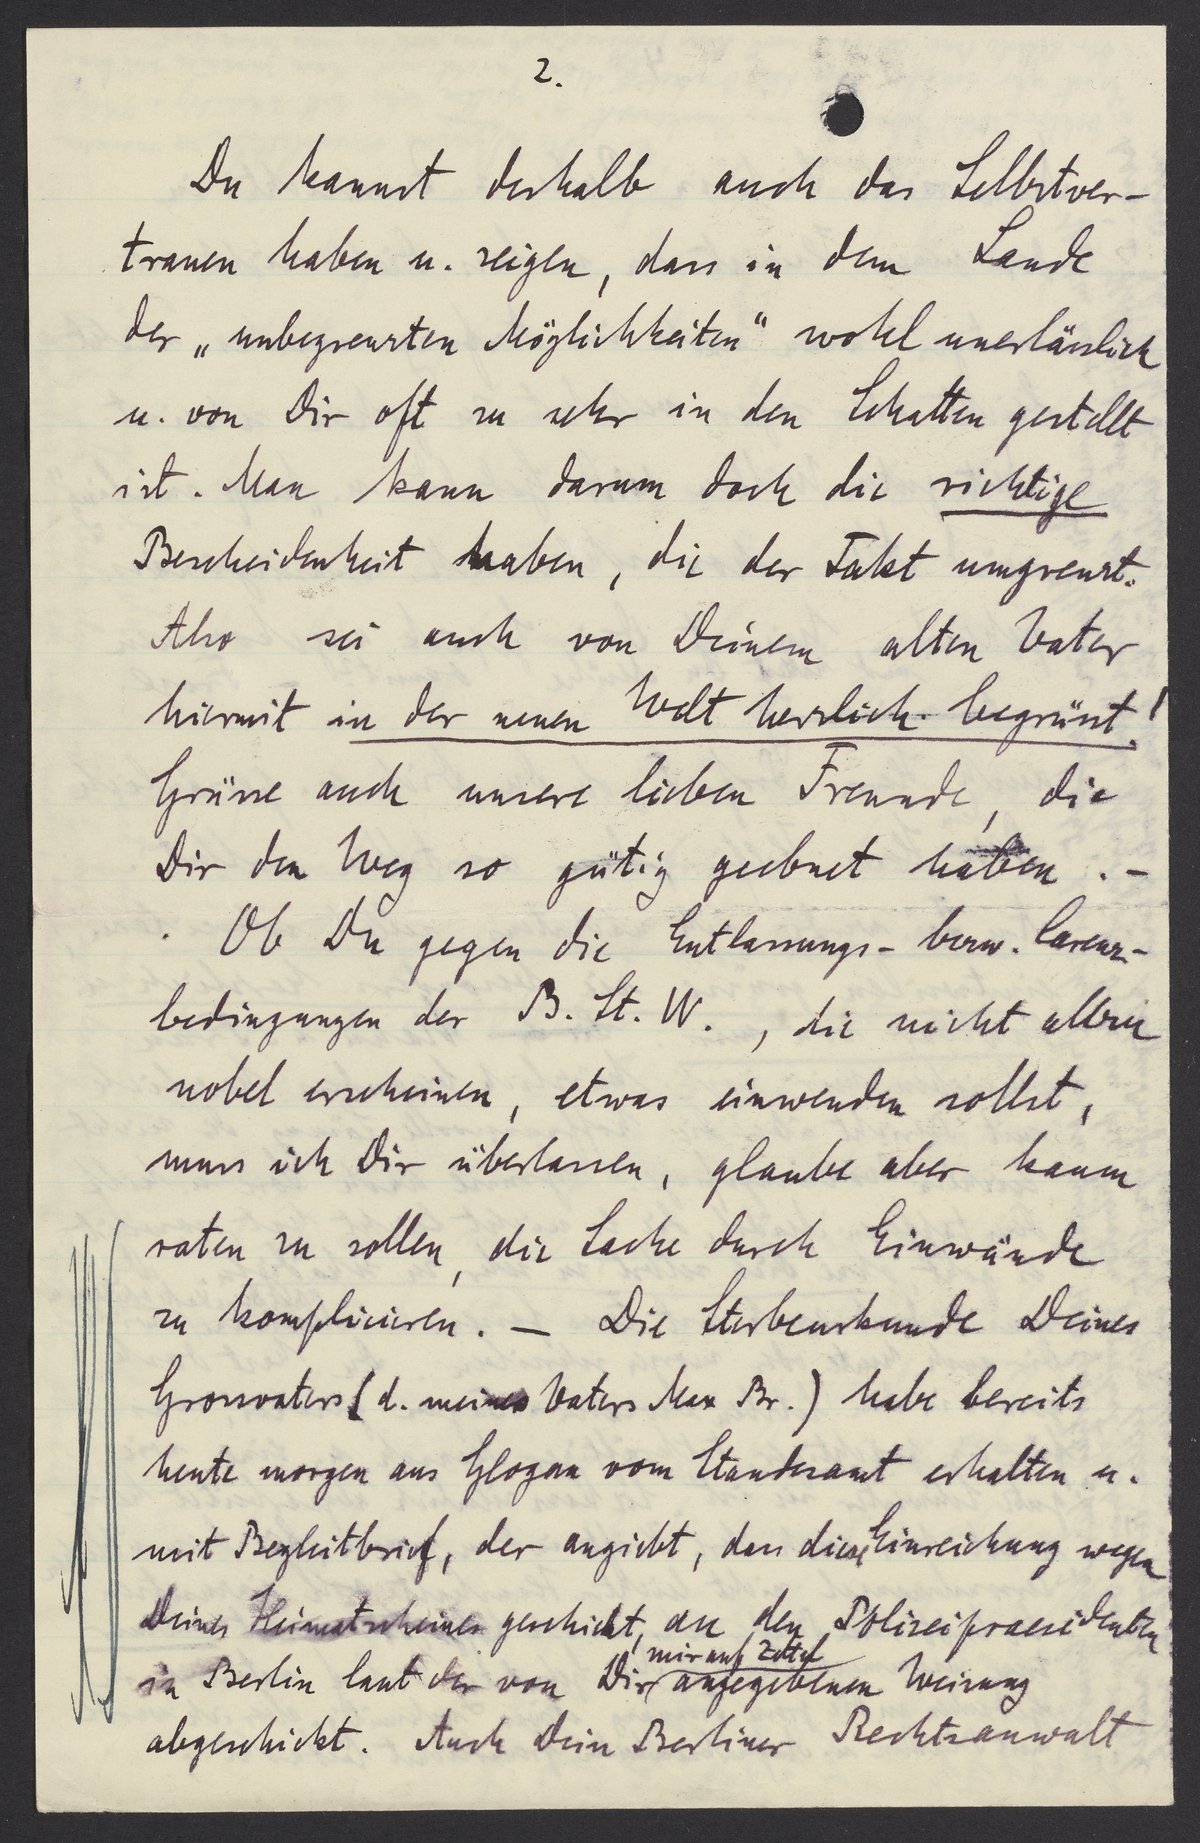 2.
Du kannst deshalb auch das Selbstver-
trauen haben u. zeigen, dass in dem Lande
der „unbegrenzten Möglichkeiten" wohl unerlässlich
u. von Dir oft zu sehr in den Schatten gestellt
ist. Man kann darum doch die richtige
Bescheidenheit haben, die der Takt umgrenzt.
Also sei auch von Deinem alten Vater
hiermit in der neuen Welt herzlich begrüsst!
Grüsse auch unsere lieben Freunde, die
Dir den Weg so gütig geebnet haben. -
Ob Du gegen die Entlassungs- bezw. Carenz-
bedingungen der B. St. W., die nicht allzu
nobel erscheinen, etwas einwenden sollst,
muss ich Dir überlassen, glaube aber kaum
raten zu sollen, die Sache durch Einwände
zu komplicieren. — Die Sterbeurkunde Deines
Grossvaters (d. meines Vaters Max Br.) habe bereits
heute morgen aus Glogau vom Standesamt erhalten u.
mit Begleitbrief, der angiebt, dass diese Einreichung wegen
Deines Heimatscheines geschieht, an den Polizeipraesidenten
mir auf Zettel
in Berlin laut der von Dir angegebenen Weisung
abgeschickt. Auch Dein Berliner Rechtsanwalt